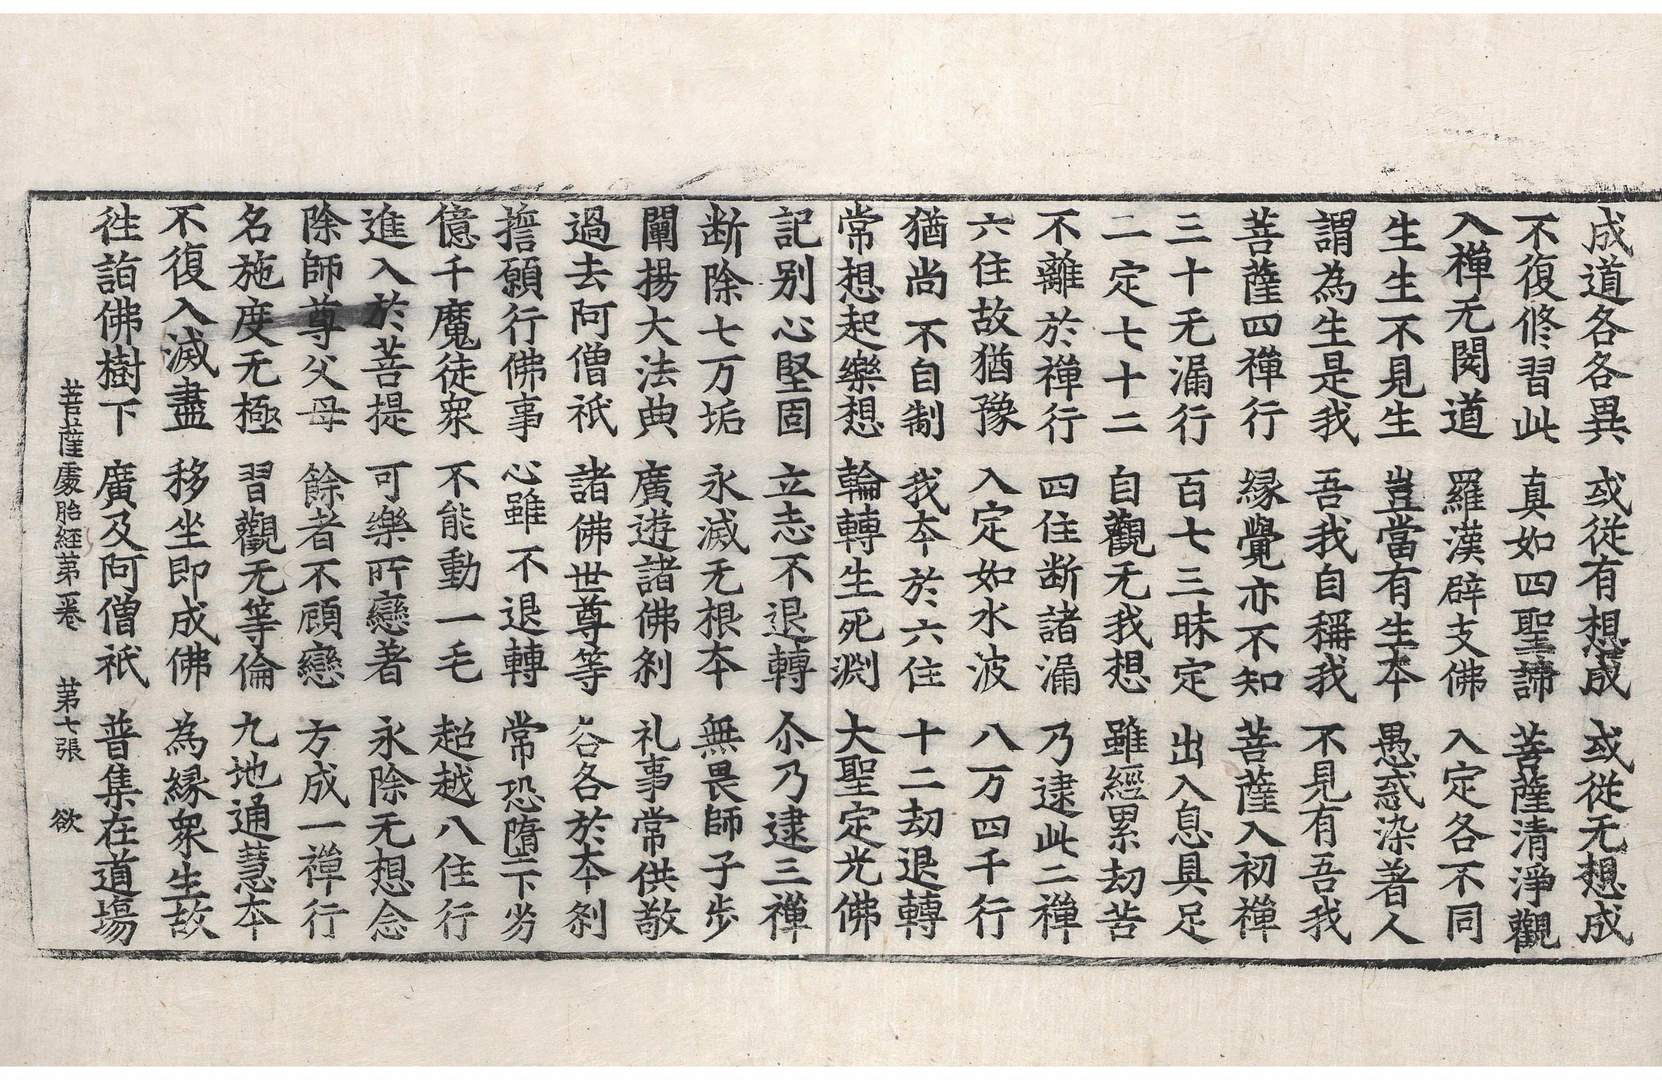 成道各各異 或從有想成 或從无想成
不復修習此 真如四聖諦 菩薩清淨觀
入禪无閡道 羅漢辟支佛 入定各不同
生生不見生 豈當有生本 愚惑染著人
謂為生是我 吾我自稱我 不見有吾我
菩薩四禪行 縁覺亦不知 菩薩入初禪
三十无漏行 百七三昧定 出入息具足
二定七十二 自觀无我想 雖經累劫苦
不離於禪行 四住断諸漏 乃逮此二禪
六住故猶豫 入定如水波 八万四千行
猶尚不自制 我夲於六住 十二劫退轉
常想起樂想 輪轉生死渕 大聖定光佛
記别心堅固 立志不退轉 尒乃逮三禪
断除七万垢 永滅无根夲 無畏師子步
闡揚大法典 廣遊諸佛刹 礼事常供敬
過去阿僧祇 諸佛世尊等 各各於夲刹
擔願行佛事 心雖不退轉 常恐墮下劣
億千魔徒衆 不能動一毛 超越八住行
進入於菩提 可樂所戀著 永除无想念
除師尊父母 餘者不顧戀 方成一禪行
名施度无極 習觀无等倫 九地通慧夲
不復入滅盡 移坐即成佛 為縁衆生故
徃詣佛樹下 廣及阿僧祇 普集在道場
菩薩處胎經第一卷 第七張 欲